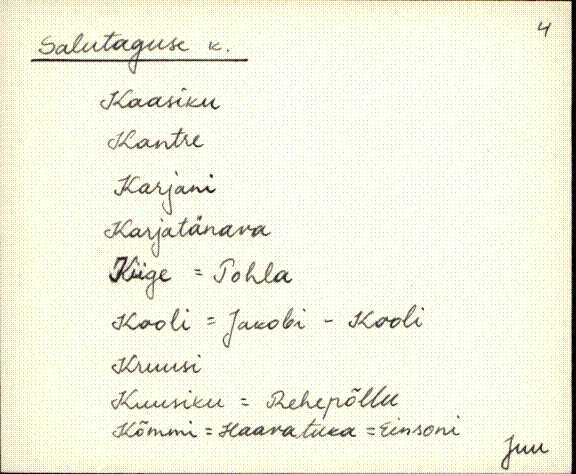 4
Salutaguse k.
Kaasiku
Kantre
Karjani
Karjatänava
Kiige = Tohla
Kooli = Jakobi - Kooli
Kruusi
Kuusiku = Rehepõllu
Kõmmi = Haavatuka = Einsoni
Juu